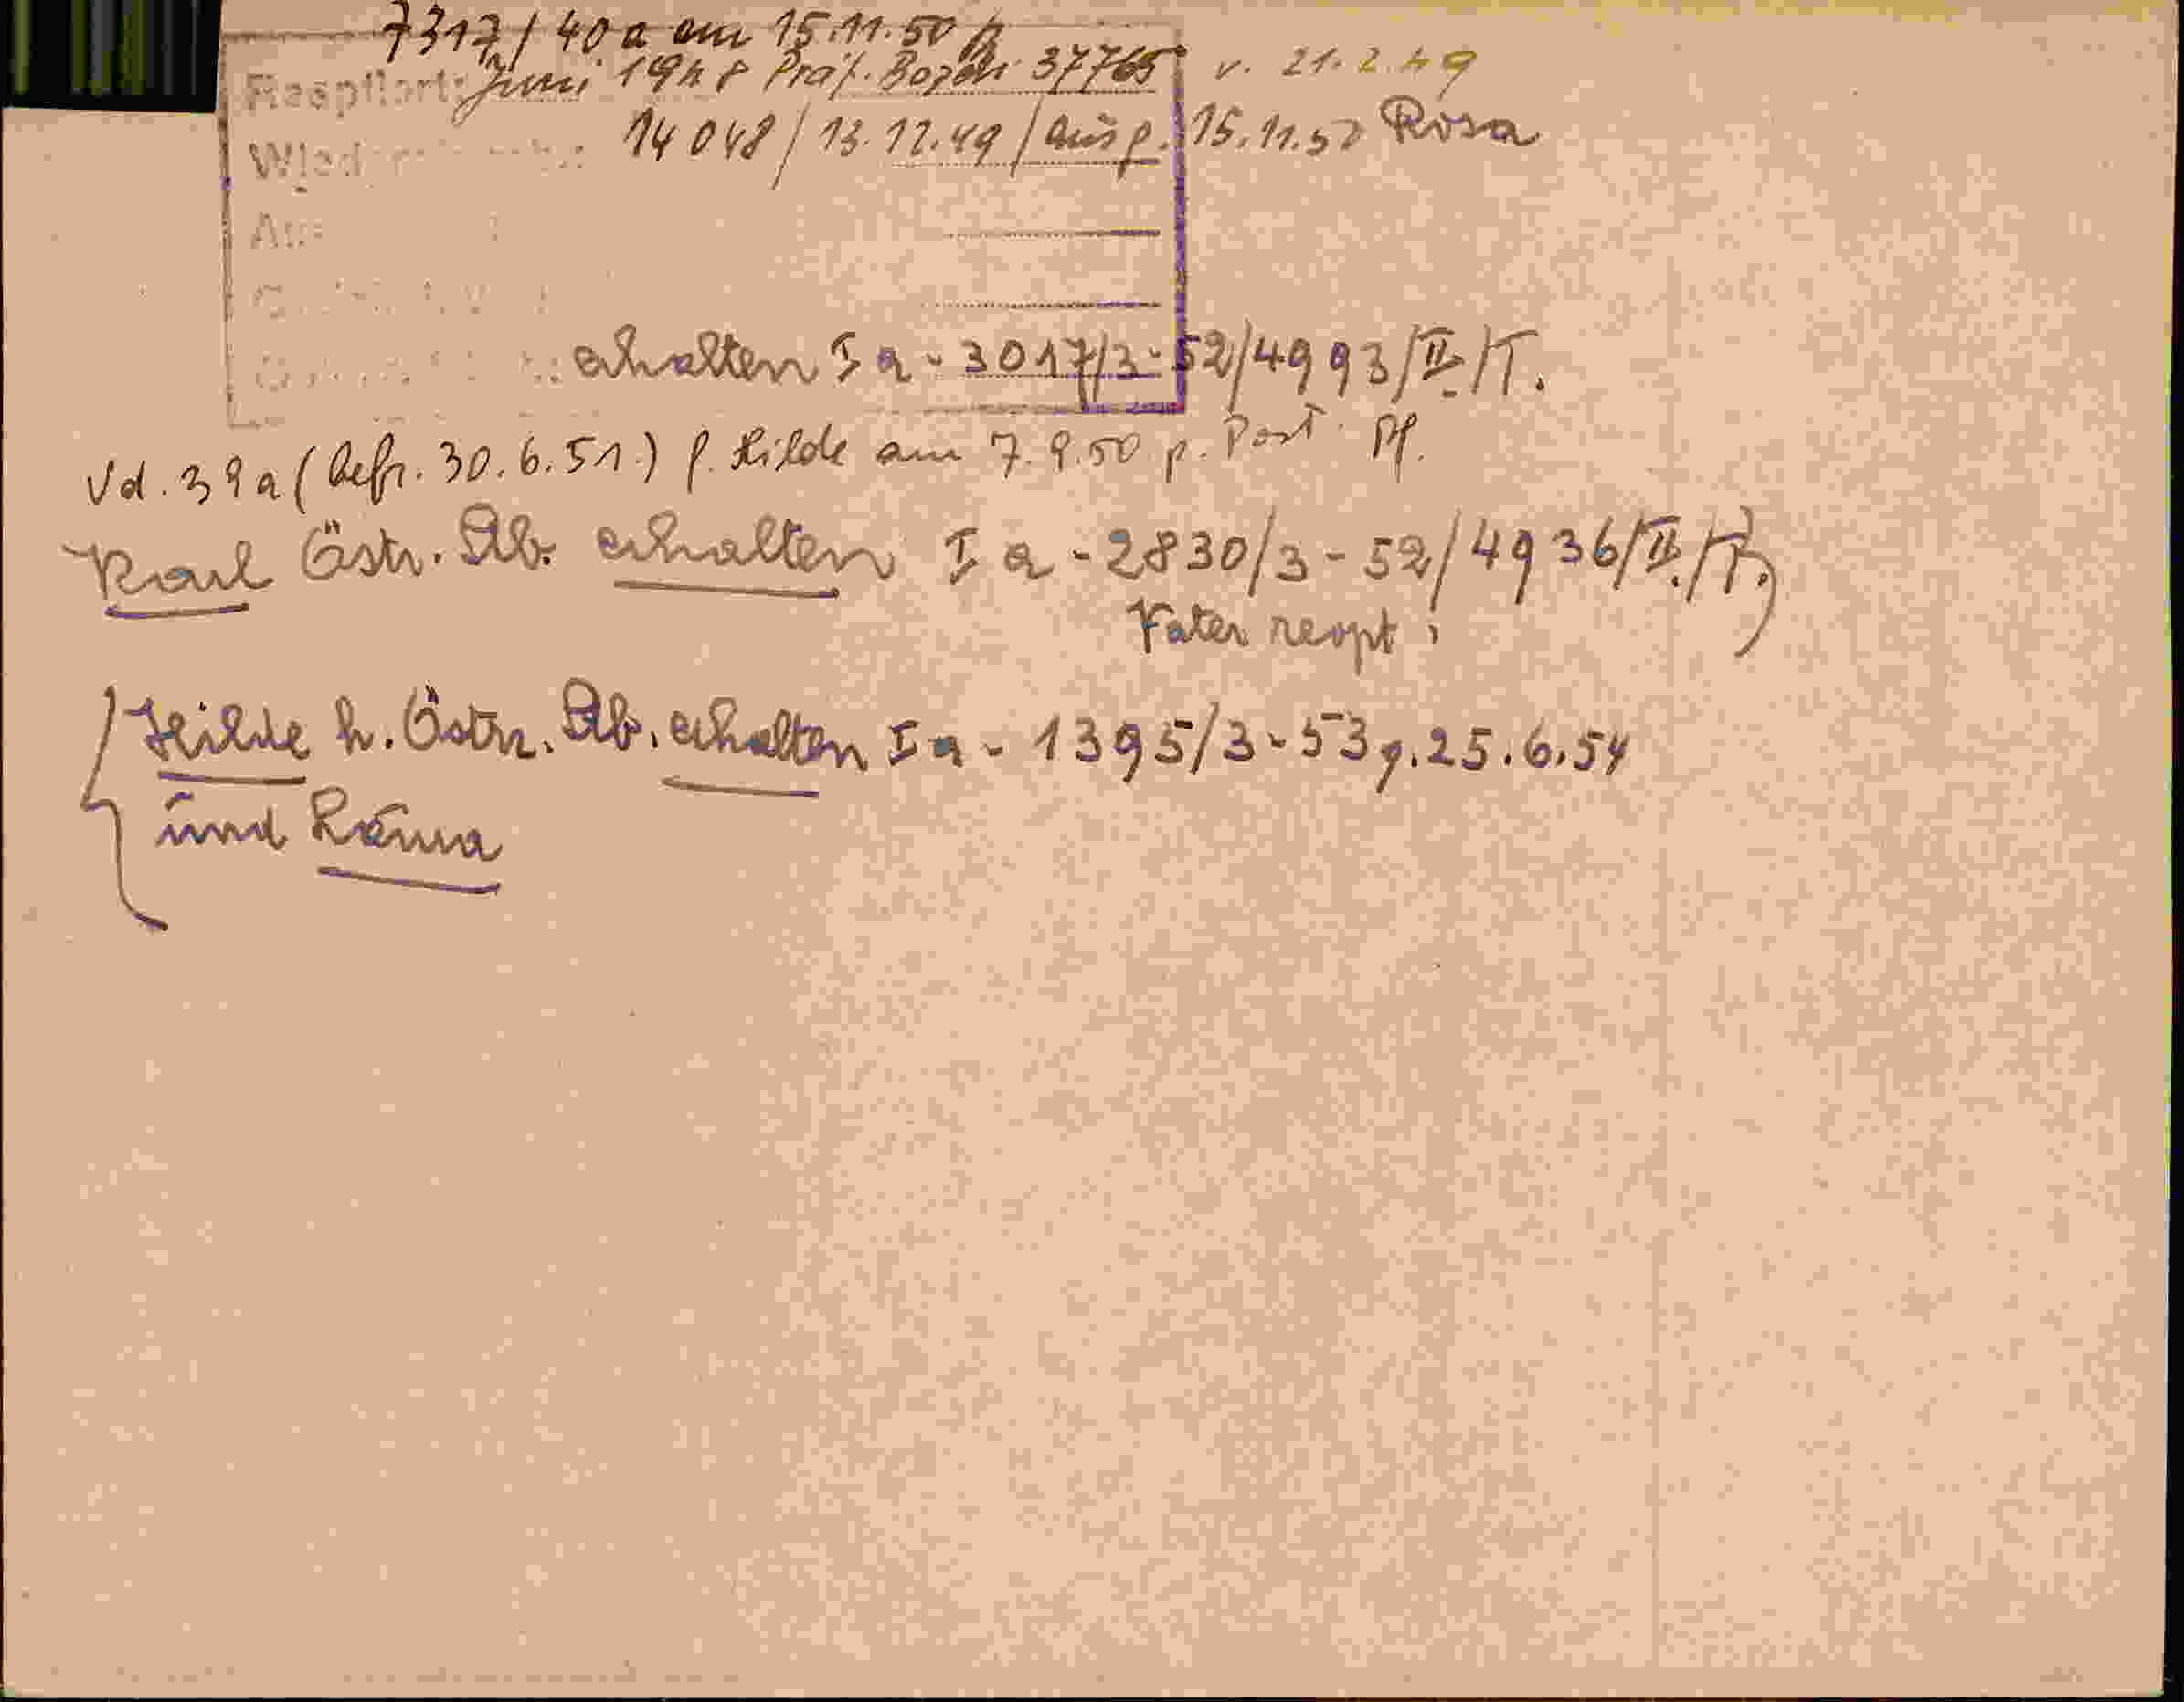 7317/40a am 15.11.50
Juni 1948 Präf. Bozen 37765 v. 21.2.49
14048/13.12.49/ausg. 15.11.50 Rosa
erhalten Ia - 3017/3-52/4993/II/T.
Vd. 39a (befr. 30.6.51.) f. Hilde am 7.9.50 p. Post.
Karl Östr. Stb. erhalten Ia - 2830/3-52/4936/II./T.
Vater reopt.
Hilde h. Östr. Stb. erhalten Ia - 1395/3-53 g. 25.6.54
und